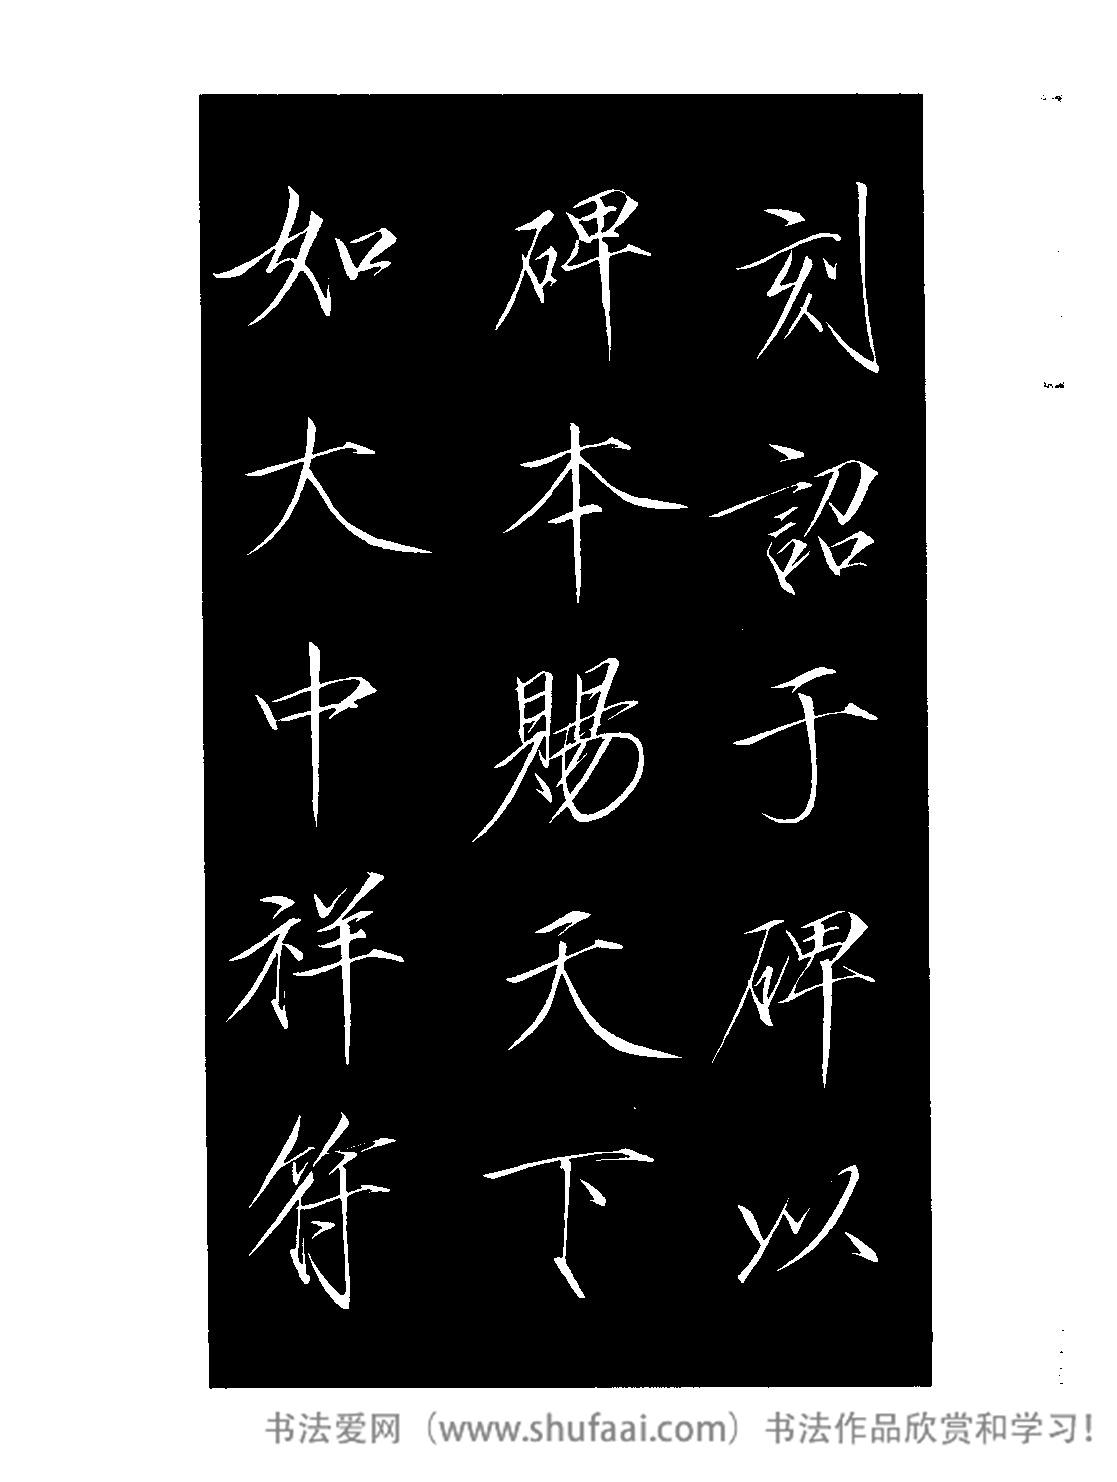 刻詔于碑以
碑本賜天下
如大中祥符
书法爱网（www.shufaai.com）书法作品欣赏和学习！